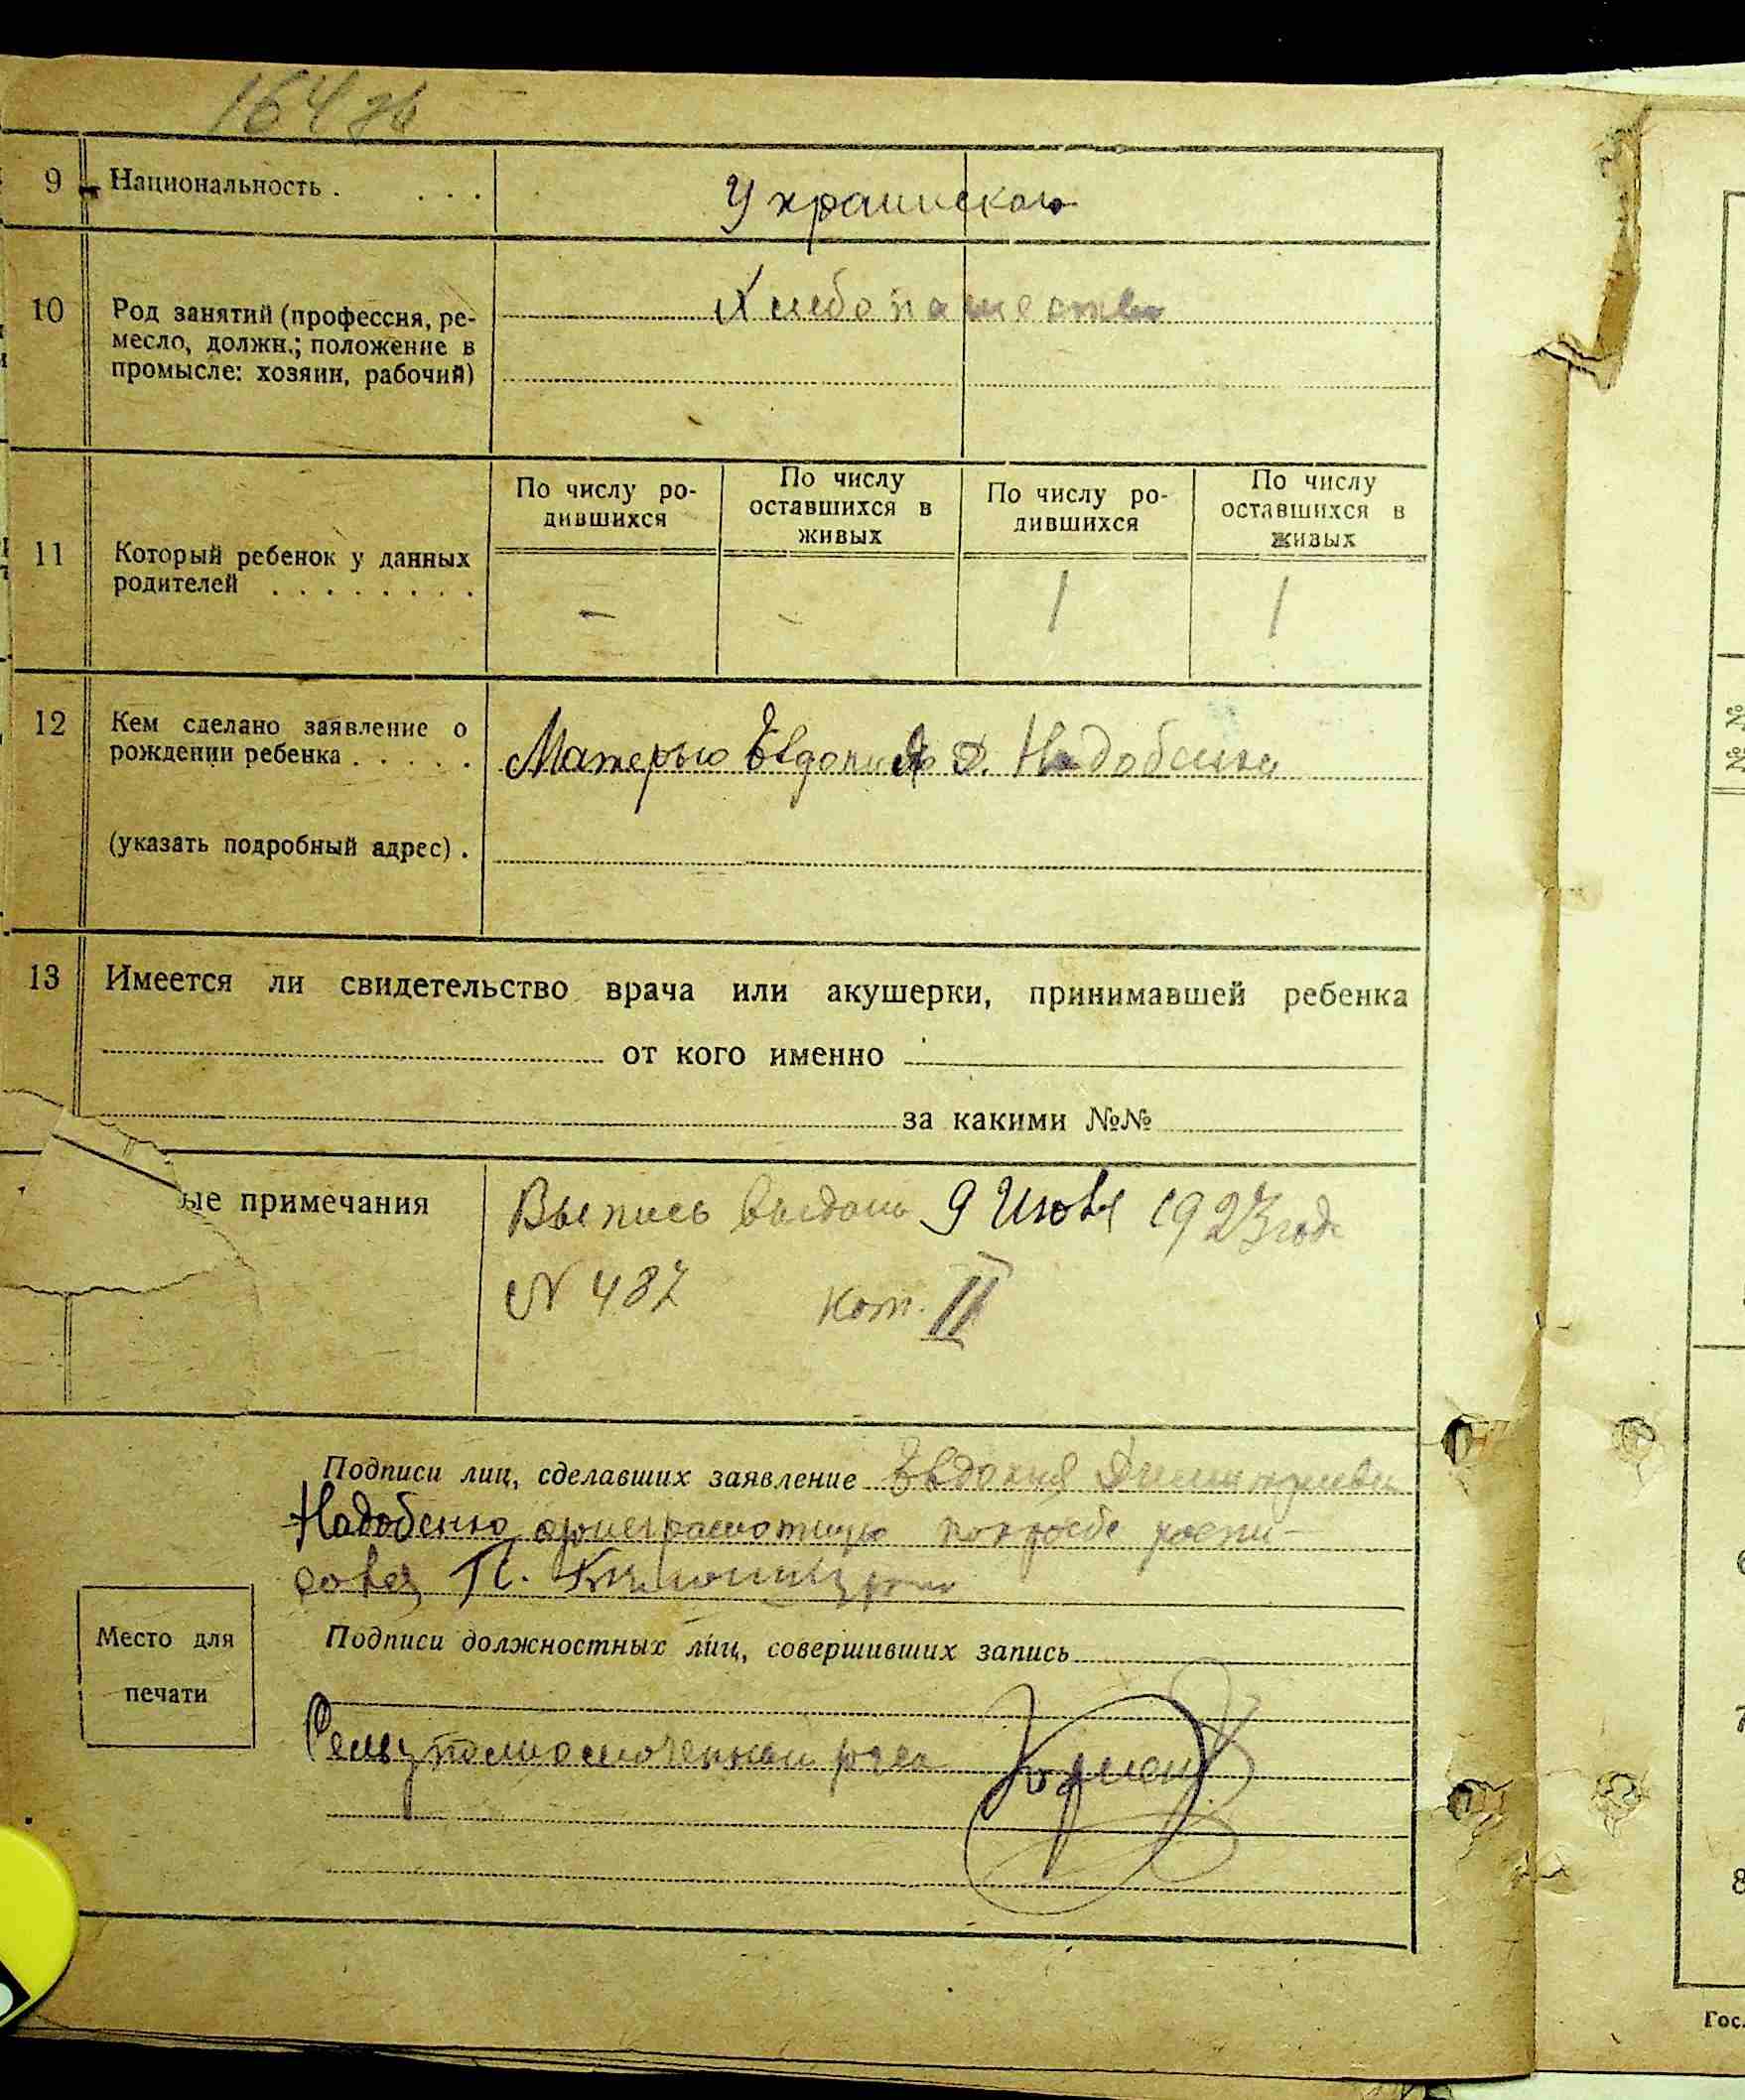 164 об
9 Национальность . . . . Украинская
10 Род занятий (профессия, ре-
месло, должн.; положение в
промысле: хозяин, рабочий)
Хлебопашество
По числу ро-
дившихся
По числу
оставшихся в
живых
По числу ро-
дившихся
По числу
оставшихся в
живых
11 Который ребенок у данных
родителей . . . . . . . .
- - 1 1
12 Кем сделано заявление о
рождении ребенка . . . . .
Матерью Евдокия Д. Надобенко
(указать подробный адрес) .
13 Имеется ли свидетельство врача или акушерки, принимавшей ребенка
от кого именно
за какими №№
ые примечания
Выпись выдана 9 Июля 1923 года
N 487 кот. II
Подписи лиц, сделавших заявление Евдокия Дмитриевна
Надобенко
П.
Место для
печати
Подписи должностных лиц, совершивших запись
№ №
7
8
Гос.